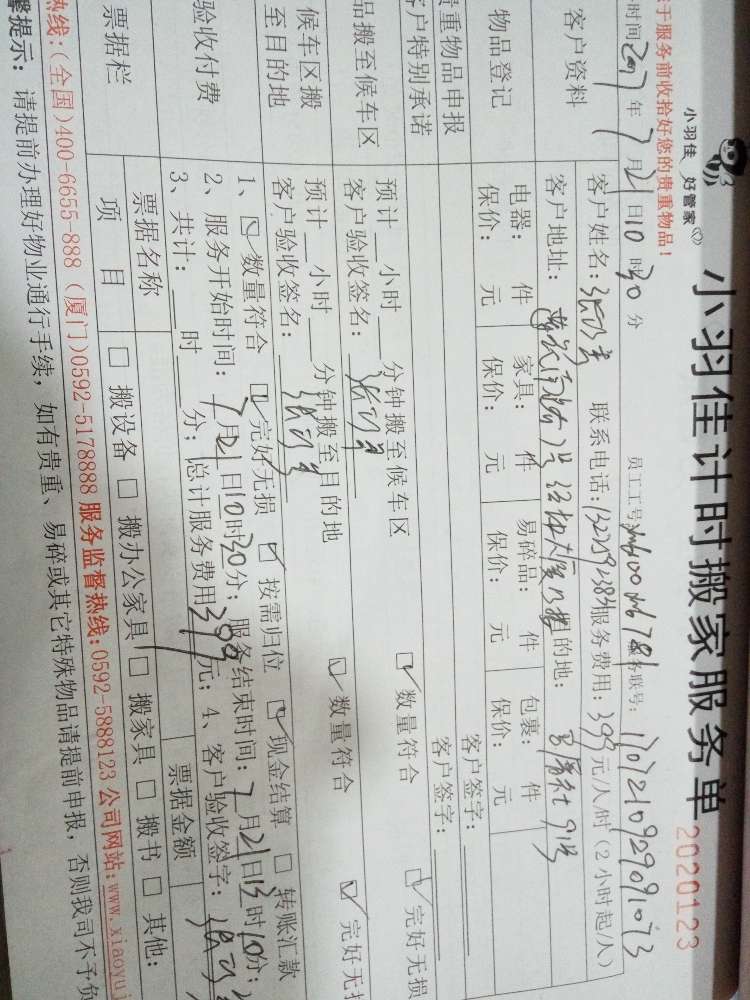 小羽佳 好管家
小羽佳计时搬家服务单
2020123
于服务前收拾好您的贵重物品!
时间 2017 年 7 月 21 日 10 时 30 分 员工工号 服务联号: 1707210929091073
客户资料
客户姓名: 联系电话: 服务费用: 399 元/人/时 (2小时起/人)
客户地址: 目的地:
物品登记
电器: 件 家具: 件 易碎品: 件 包裹: 件
保价: 元 保价: 元 保价: 元 保价: 元
贵重物品申报 客户签字:
客户特别承诺 客户签字:
品搬至候车区
预计 小时 分钟搬至候车区 ☑数量符合 ☑完好无损
客户验收签名:
候车区搬至目的地
预计 小时 分钟搬至目的地 ☑数量符合 ☑完好无损
客户验收签名:
验收付费
1、☑数量符合 ☑完好无损 ☑按需归位 ☑现金结算 □转账汇款
2、服务开始时间: 7 月 21 日 10 时 30 分; 服务结束时间: 7 月 21 日 13 时 10 分;
3、共计: 时 分; 总计服务费用 399 元; 4、客户验收签字:
票据栏
票据名称 票据金额
项目 □搬设备 □搬办公家具 □搬家具 □搬书 □其他:
热线:(全国)400-6655-888 (厦门)0592-5178888 服务监督热线:0592-5888123 公司网站:www.xiaoyuj
馨提示: 请提前办理好物业通行手续, 如有贵重、易碎或其它特殊物品请提前申报, 否则我司不予负